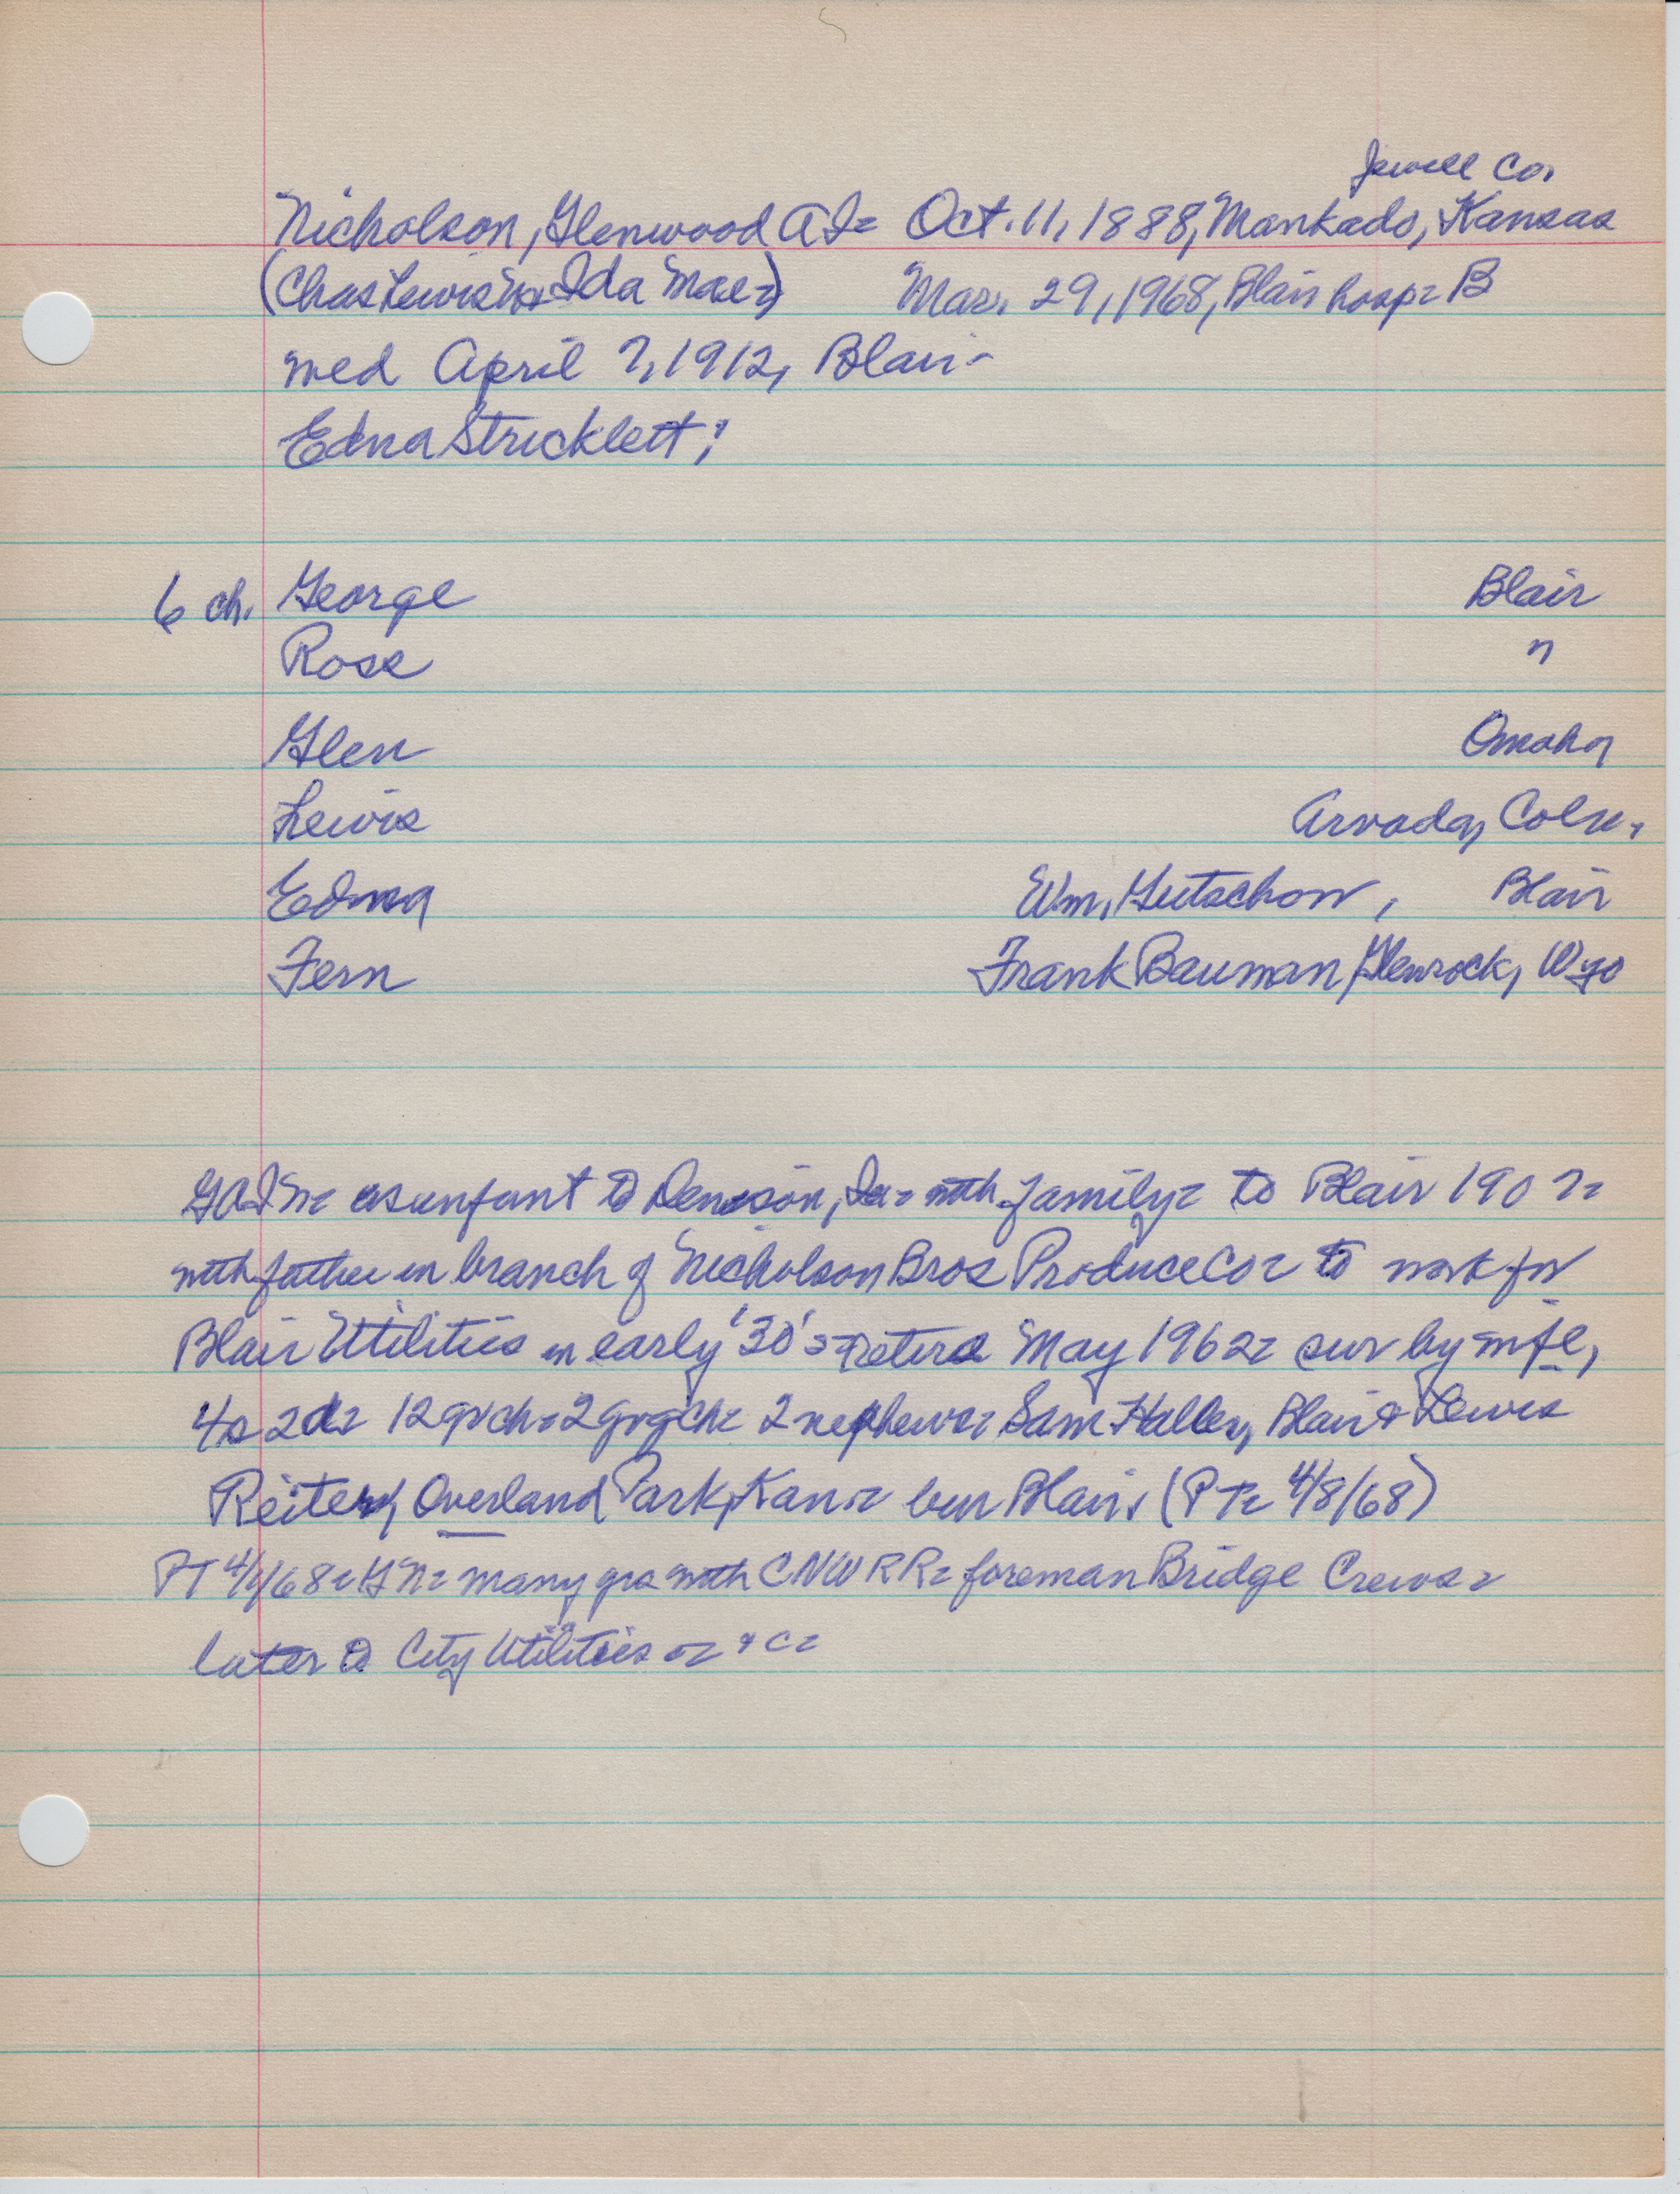 Jewell Co.
Nicholson, Glenwood A I= Oct. 11, 1888, Mankado, Kansas
(Chas Lewis N & Ida Mae=) Mar. 29, 1968, Blair hosp= B
med April 7, 1912, Blair-
Edna Stricklett;
6 ch. George Blair
Rose "
Glen Omaha
Lewis Arvada, Colo.
Edna Wm. Gutschow, Blair
Fern Frank Bauman, Glenrock, Wyo
GAIN= as infant to Denison, Ia= with family= to Blair 190 7=
with father in branch of Nicholson Bros Produce Co= to work for
Blair Utilities in early '30's= retird May 1962= sur by wife,
4s 2d= 12 grch= 2 grgrch= 2 nephews= Sam Haller, Blair & Lewis
Reiter, Overland Park, Kan= bur Blair. (PT= 4/8/68)
PT 4/4/68= GN= many yrs with CNW RR= foreman Bridge Crews=
later to City Utilities & C=